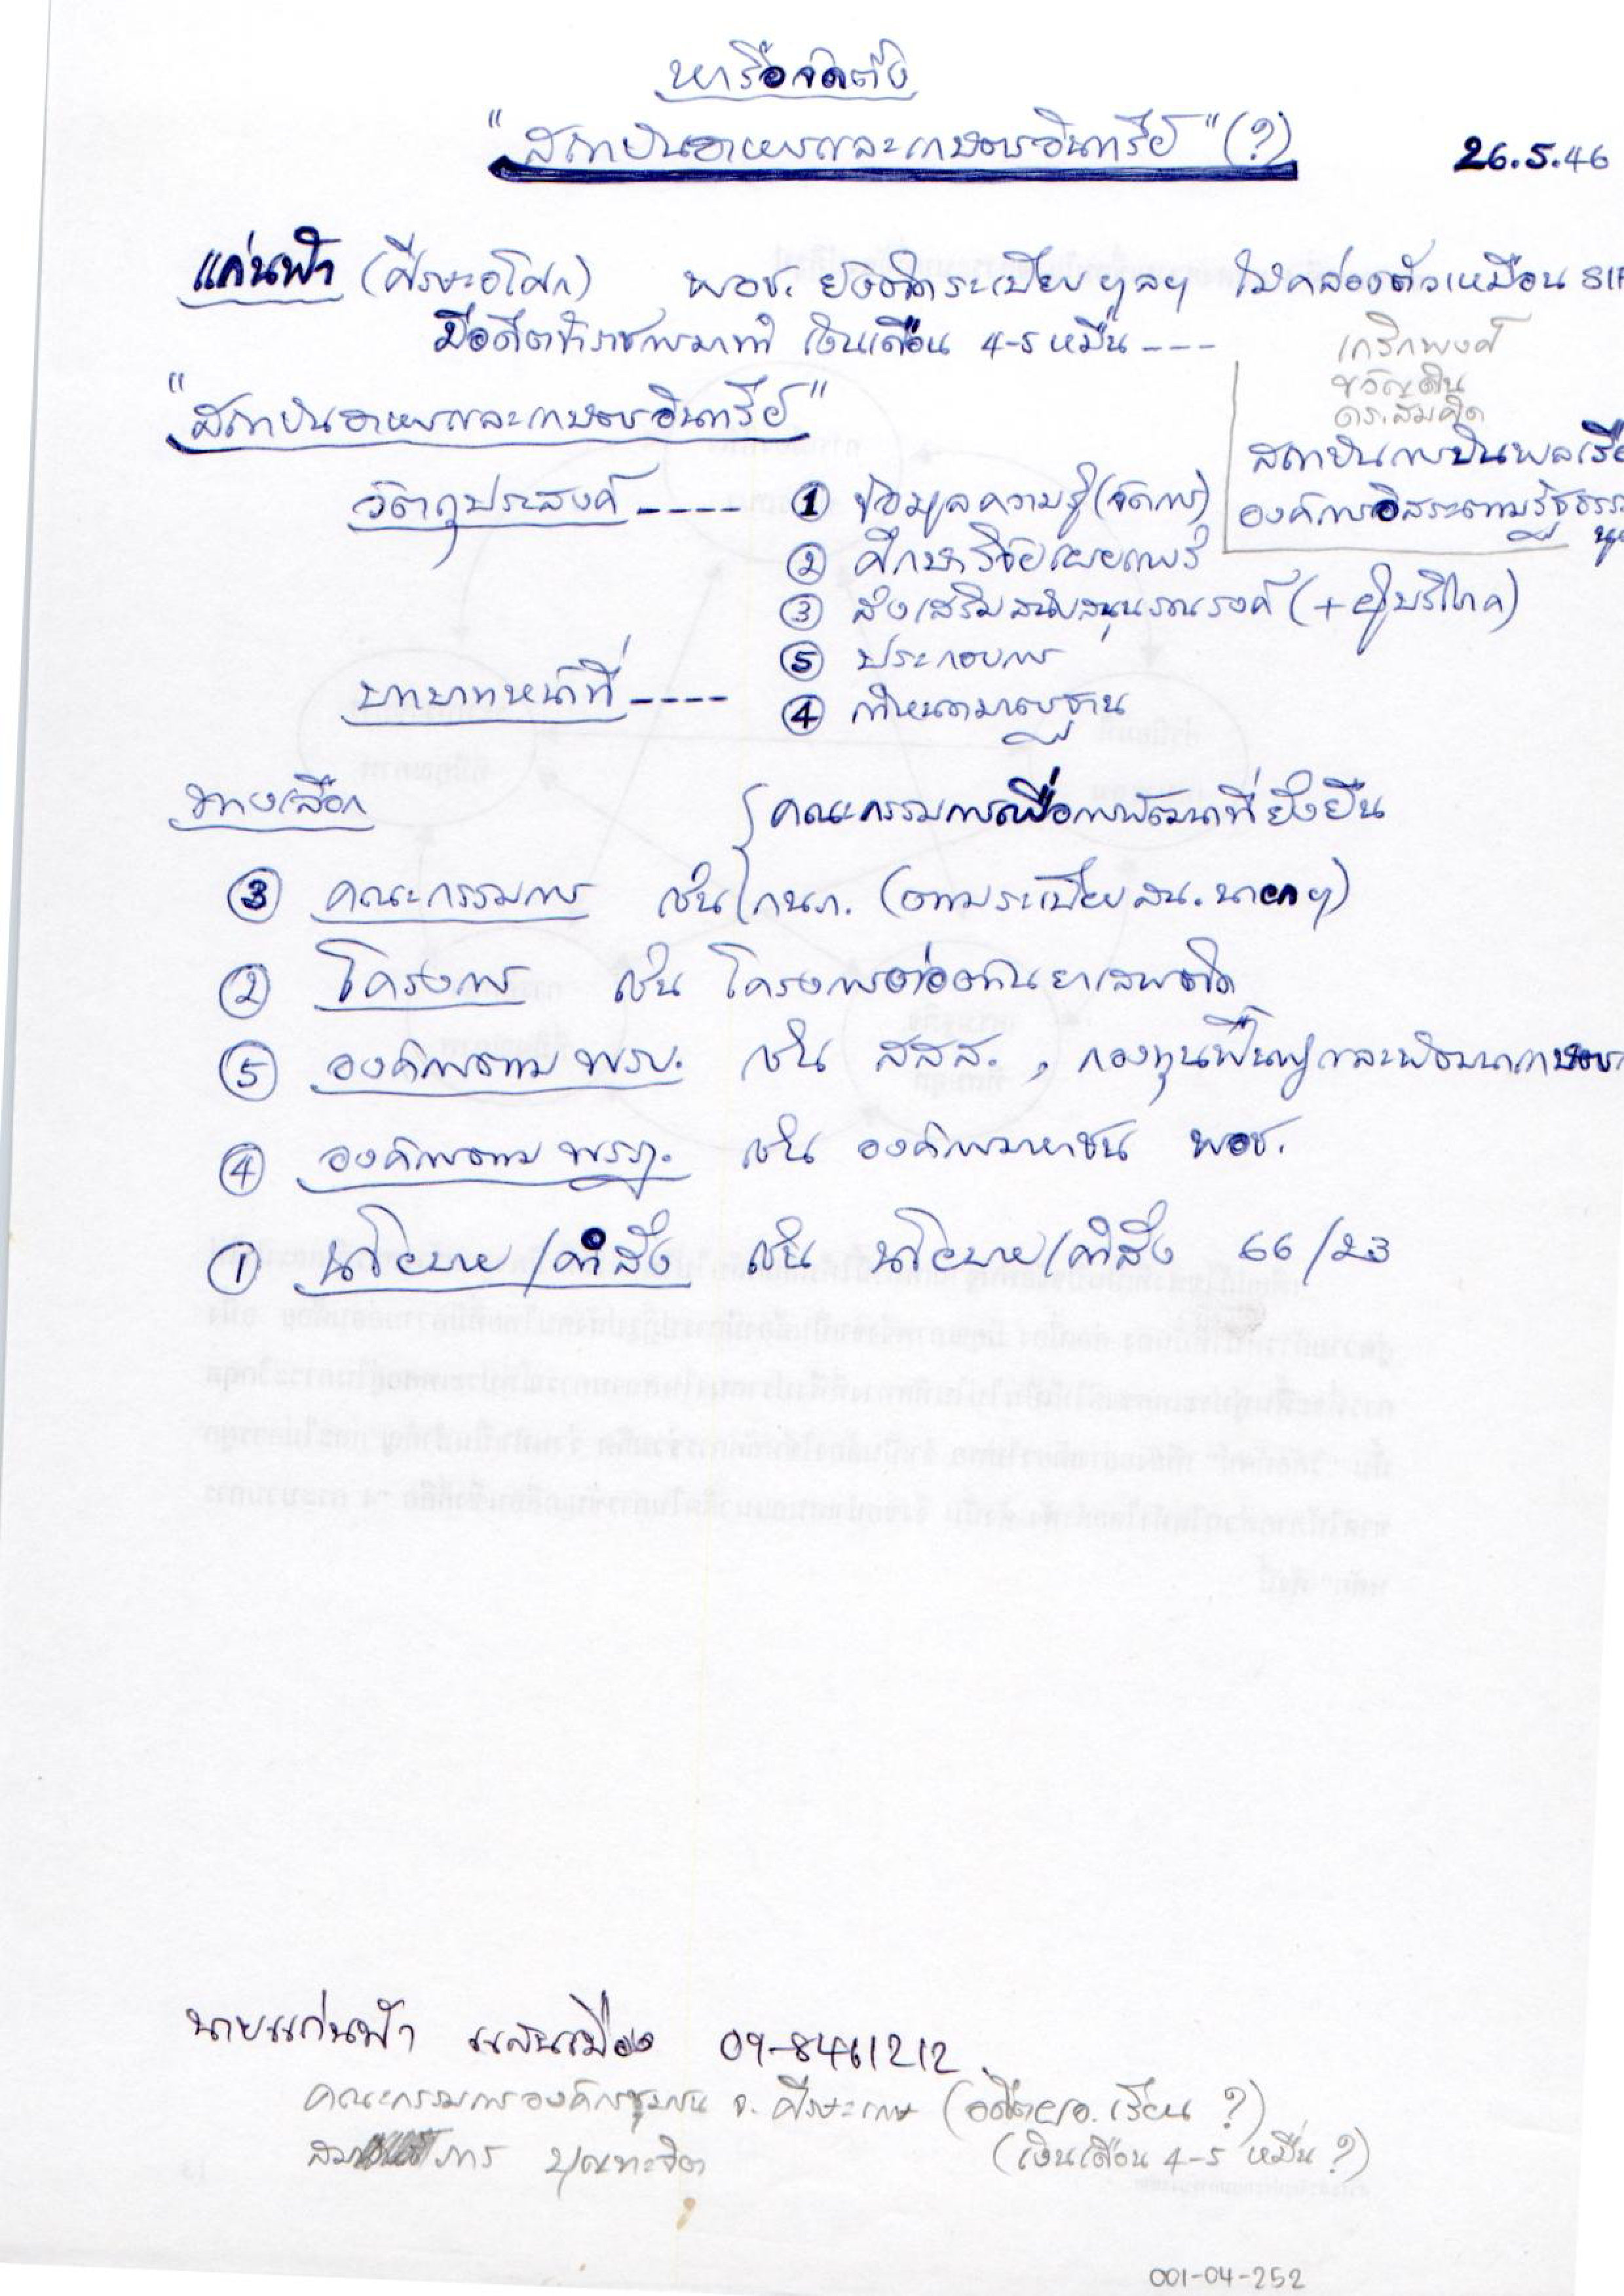 หารือจัดตั้ง
"สถาบันอาหารและเกษตรอินทรีย์" (?)
26.5.46
แก่นฟ้า (ศีรษะอโศก) พอช. ยังติดระเบียบ ฯลฯ ไม่คล่องตัวเหมือน SIF
มีอดีตข้าราชการมาทำ เงินเดือน 4-5 หมื่น ---
เกริกพงศ์
ขวัญดิน
ดร.สมคิด
สถาบันการบินพลเรือ
องค์การอิสระตามรัฐธรรมนู
"สถาบันอาหารและเกษตรอินทรีย์"
วัตถุประสงค์ ---- ① ข้อมูลความรู้ (จัดการ)
② ศึกษาวิจัยเผยแพร่
③ ส่งเสริมสนับสนุนรณรงค์ (+ผู้บริโภค)
⑤ ประกอบการ
บทบาทหน้าที่ ---- ④ กำหนดมาตรฐาน
ทางเลือก
{ คณะกรรมการเพื่อการพัฒนาที่ยั่งยืน
③ คณะกรรมการ เช่น กนภ. (ตามระเบียบสน.นายกฯ)
② โครงการ เช่น โครงการต่อต้านยาเสพติด
⑤ องค์การตาม พรบ. เช่น สสส. , กองทุนฟื้นฟูและพัฒนาเกษตร
④ องค์การตาม พรฎ. เช่น องค์การมหาชน พอช.
① นโยบาย/คำสั่ง เช่น นโยบาย/คำสั่ง 66/23
นายแก่นฟ้า แสนเมือง 09-8461212
คณะกรรมการองค์กรชุมชน จ. ศีรษะเกษ (อดีตผอ. เรียน ?)
(เงินเดือน 4-5 หมื่น ?)
001-04-252